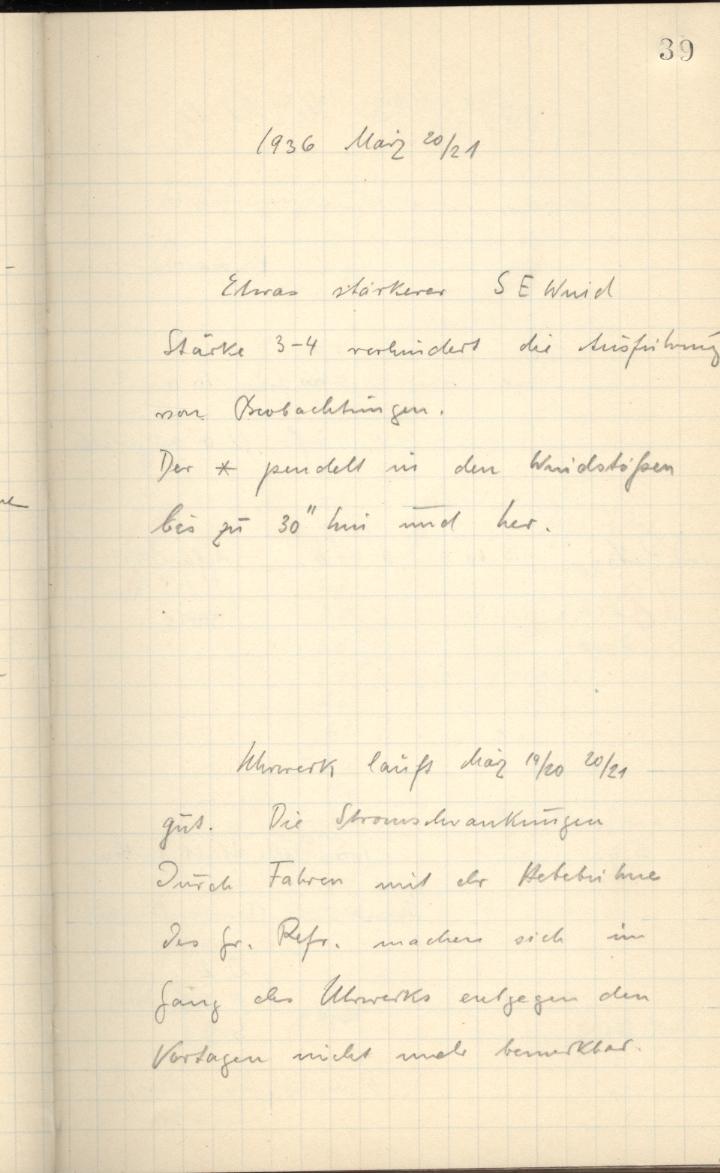 39
1936 März 20/21
Etwas stärkerer SE Wind
Stärke 3-4 verhindert die Ausführung
von Beobachtungen.
Der * pendelt in den Windstößen
bis zu 30" hin und her.
Uhrwerk läuft März 19/20 20/21
gut. Die Stromschwankungen
durch Fahren mit der Hebebühne
des gr. Refr. machen sich im
Gang des Uhrwerks entgegen den
Vortagen nicht mehr bemerkbar.